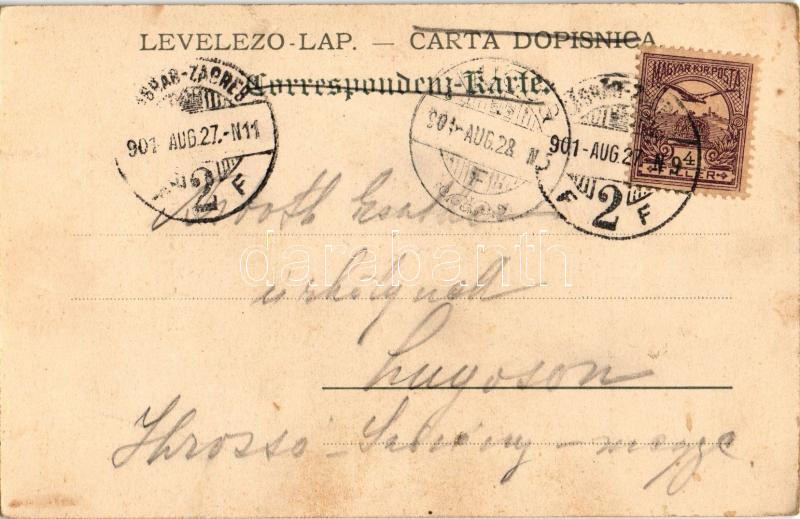 LEVELEZO-LAP. — CARTA DOPISNICA
Correspondenz-Karte.
MAGYAR KIR. POSTA
ZAGREB
901-AUG.27.-N11
2
F F
901-AUG.28. N
F
901-AUG.27.-N9
2
F F
4
darabanth
úrhölgynek
Lugoson
Krassó-Szörény-megye